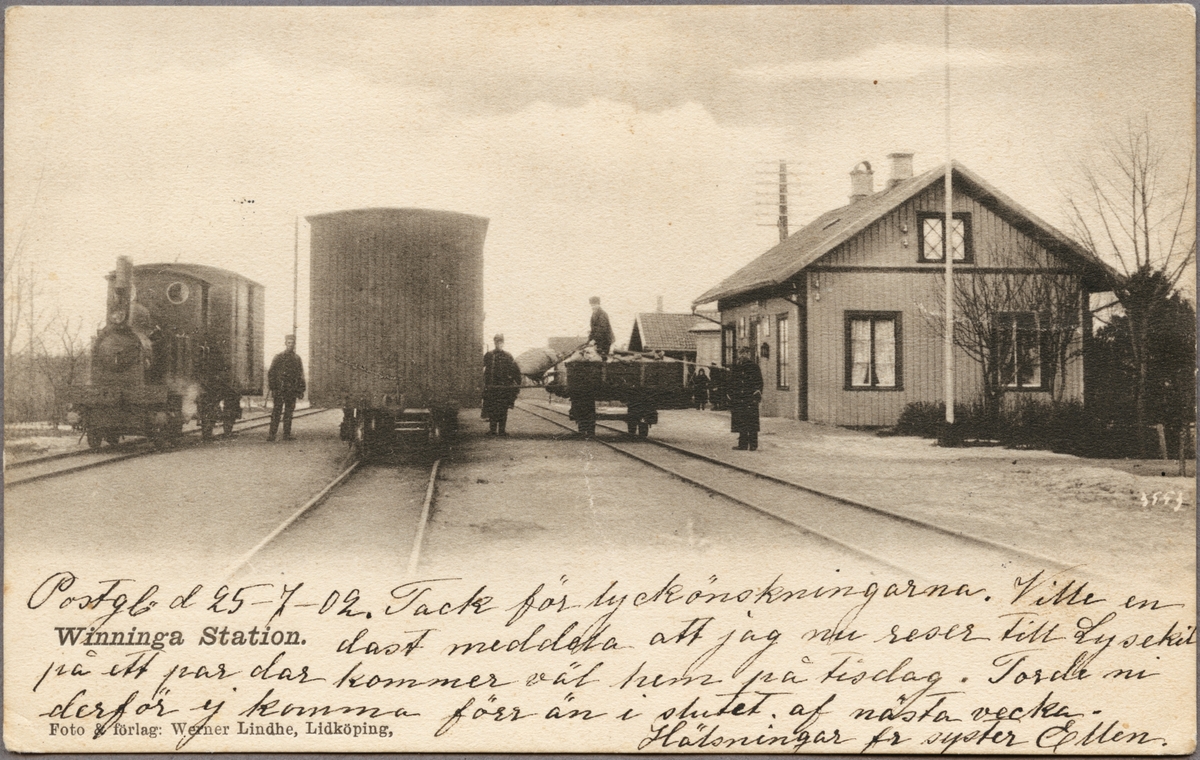 3553
Postgb d 25-7-02. Tack för lyckönskningarna. Ville en
Winninga Station.
dast meddela att jag nu reser till Lysekil
på ett par dar kommer väl hem på tisdag. Torde ni
derför ej komma förr än i slutet af nästa vecka.
Foto & förlag: Werner Lindhe, Lidköping,
Hälsningar fr syster Ellen.